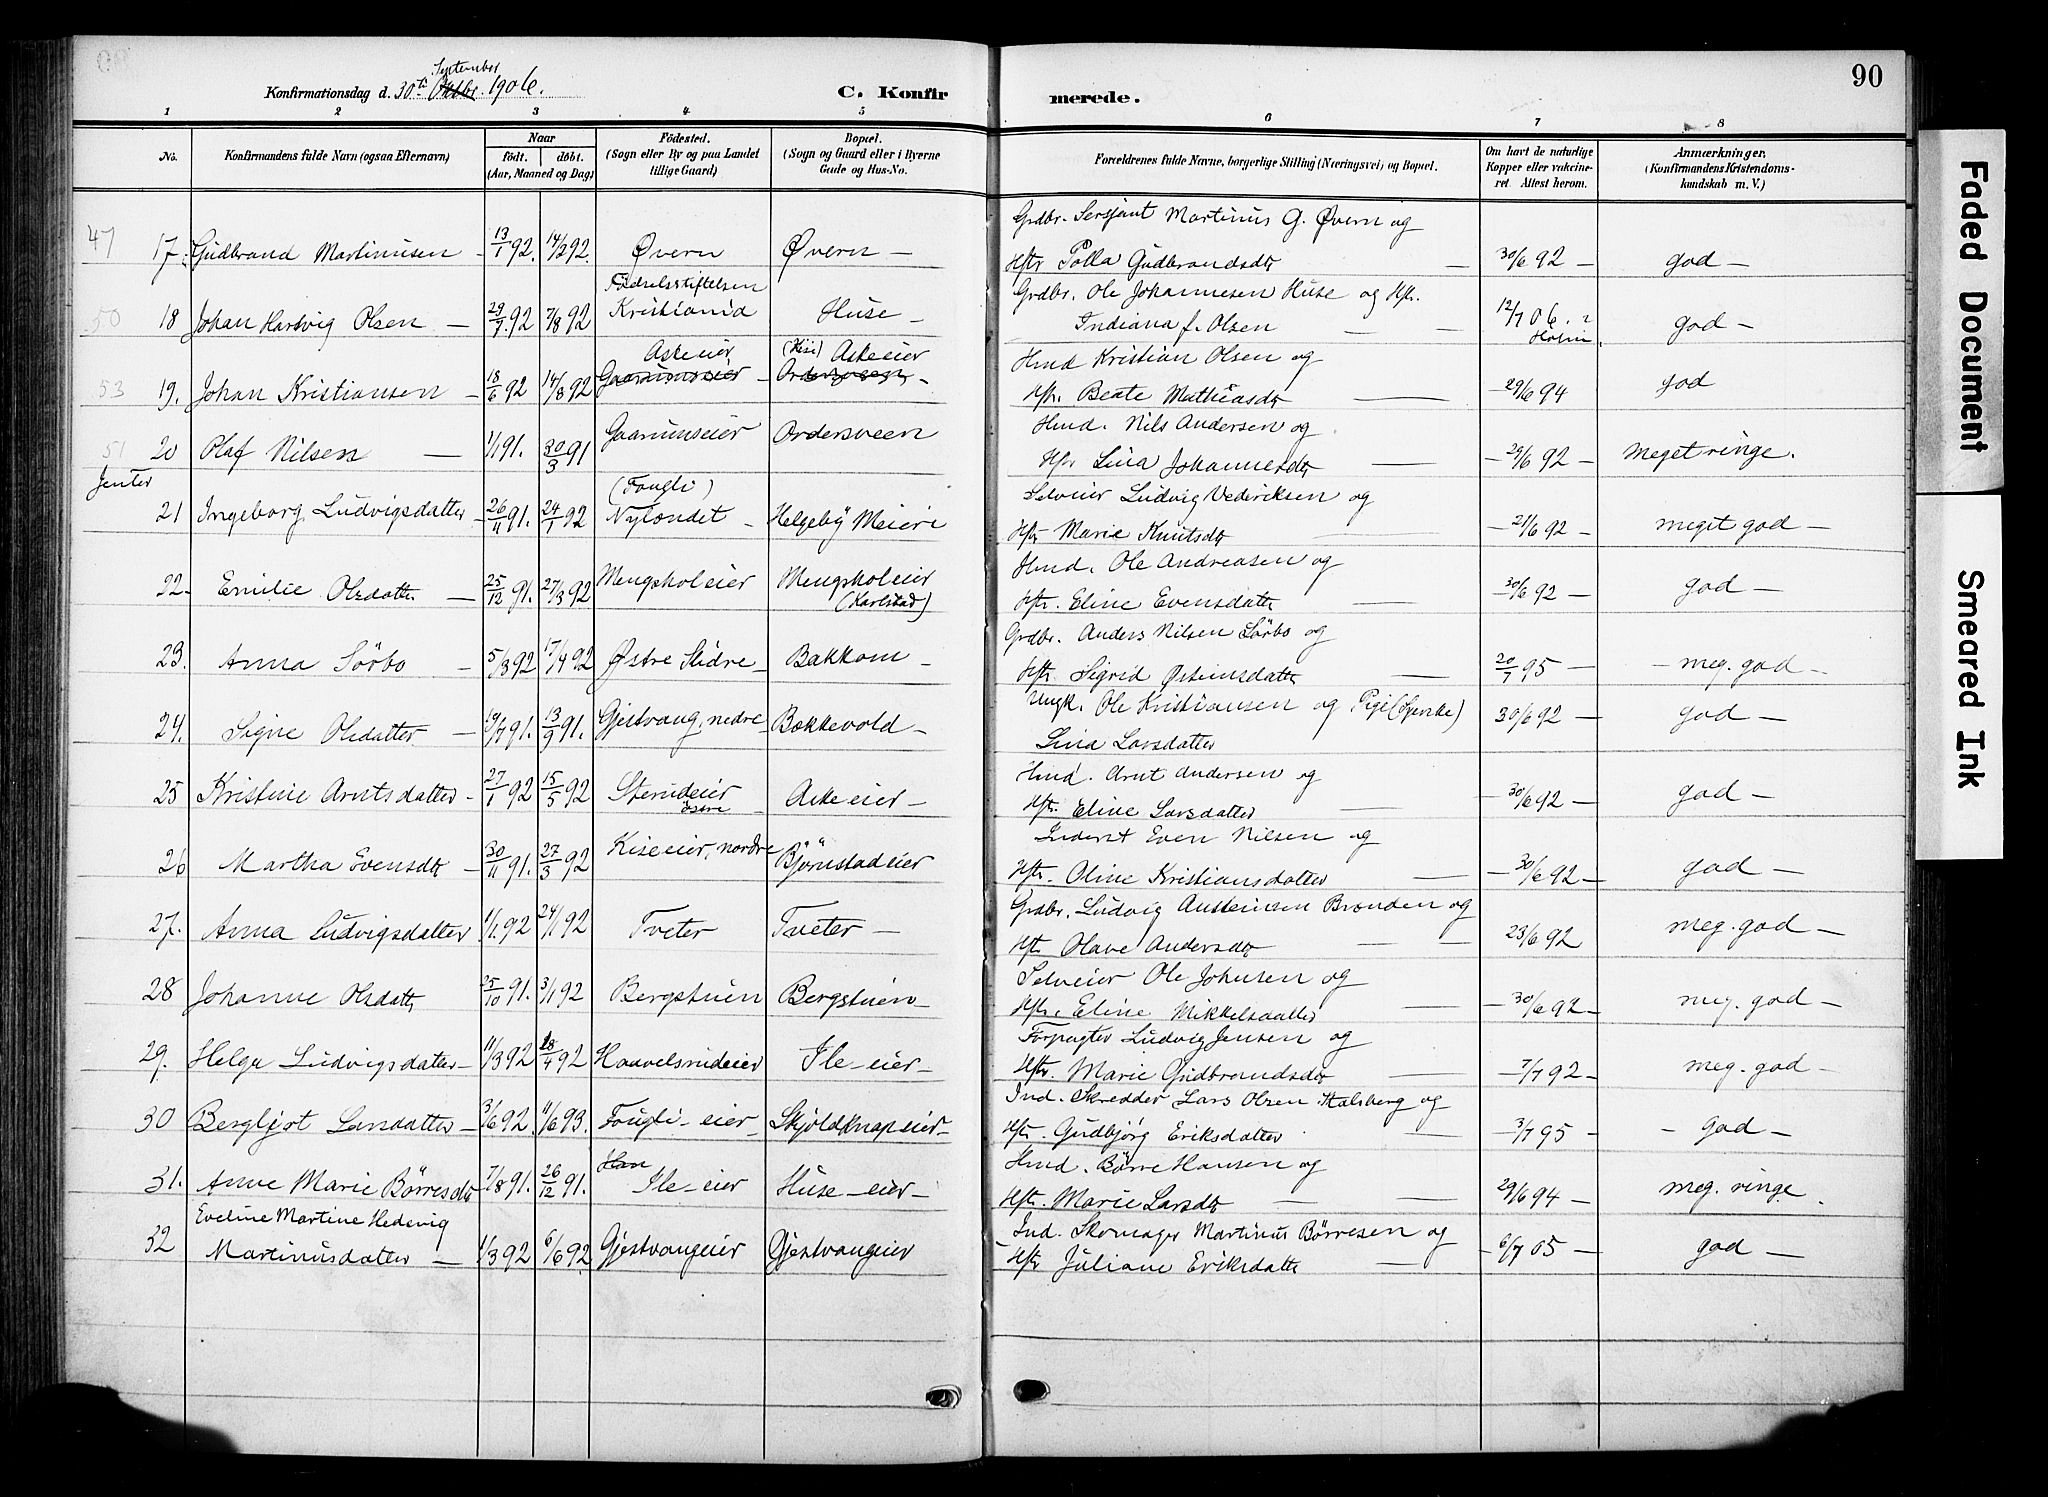 90
Konfirmationsdag d. 30te September Oktbr. 1906.
C. Konfirmerede.
1 2 3 4 5 6 7 8
No.
Konfirmandens fulde Navn (ogsaa Efternavn)
Naar
født. døbt.
(Aar, Maaned og Dag)
Födested.
(Sogn eller By og paa Landet tillige Gaard)
Bopæl.
(Sogn og Gaard eller i Byerne Gade og Hus-No.
Forældrenes fulde Navne, borgerlige Stilling (Næringsvei) og Bopæl.
Om havt de naturlige Kopper eller vakcineret. Attest herom.
Anmærkninger.
(Konfirmandens Kristendomskundskab m. V.)
Grdbr. Sersjant Martinus G. Øvern og
47 17. Gudbrand Martinusen – 13/1 92. 14/2 92. Øvern Øvern – Hstr Polla Gudbrandsdtr – 30/6 92 – god –
Fødselsstiftelsen Grdbr. Ole Johannesen Huse og Hstr.
50 18 Johan Hartvig Olsen – 29/7 92 7/8 92 Kristiania Huse – Indiana f. Olsen – – 12/7 06. god –
Askeier (Kise) Askeier Hmd Kristian Olsen og
53 19. Johan Kristiansen – 18/6 92 14/8 92 Hstr. Beate Mathiasdtr – – 29/6 94 god
Hmd. Nils Andersen og
51 20 Olaf Nilsen – 1/1 91. 30/3 91 Gaarunseier Ordersveen Hstr Lina Johannesdtr – – 29/6 92 – Meget ringe.
Jenter
(Fougli) Selveier Ludvig Vederiksen og
21 Ingeborg Ludvigsdatter – 26/11 91. 24/1 92 Nylændet – Helgeby Meieri Hstr Marie Knutsdtr – – 21/6 92 – meget god –
Hmd. Ole Andreasen og
22. Emilie Olsdattr – 25/12 91. 27/3 92 Mengskoleier Mengskoleier (Karlstad) Hstr. Eline Evensdattr – – 30/6 92 – god –
Grdbr. Anders Nilsen Sörbo og
23. Anna Sörbo – 5/3 92 17/4 92 Østre Slidre – Bakkom – Hstr Sigrid Østensdattr – 20/7 95 – – meg. god –
Ungk. Ole Kristiansen og Pige
24. Signe Olsdatter – 19/7 91. 13/9 91. Gjestvang, nedre – Bakkevold – Lina Larsdatter 30/6 92 – god –
Hmd. Arnt Andersen og
25 Kristine Arntsdatter – 27/1 92 15/5 92 Sterudeier østre – Askeeier – Hstr. Eline Larsdatter – – 30/6 92 – god –
Inderst Even Nilsen og
26 Martha Evensdtr – 30/11 91. 27/3 92 Kiseeier, nordre Bjørnstadeier Hstr. Oline Kristiansdatter – – 30/6 92 – god –
Grdbr. Ludvig Austeinsen Brænden og
27. Anna Ludvigsdatter 1/1 92 24/1 92 Tveter Tveter – Hstr Olave Andersdtr – – 23/6 92 meg. god –
Selveier Ole Johnsen og
28 Johanne Olsdattr 25/10 91. 3/1 92 Bergstuen Bergstuen – Hstr. Eline Mikkelsdatter – – 30/6 92 – meg. god –
Forpagter Ludvig Jensen og
29. Helga Ludvigsdatter – 11/3 92 18/4 92 Haavelsrudeier Ile-eier – Hstr. Marie Gudbrandsdtr – – 7/7 92 – meg. god –
Ind. Skredder Lars Olsen Stalsberg og
30 Bergljot Larsdatter – 3/6 92. 11/6 93. Fougli-eier – Skjoldknapeier – Hstr. Gudbjørg Eriksdatter – 3/7 95 – – god –
Hmd. Börre Hansen og
31. Anne Marie Börresdtr 7/8 91. 26/12 91. Ile-eier Huse-eier – Hstr. Marie Larsdtr – – 29/6 94 – meg. ringe
Eveline Martine Hedevig Ind. Skomager Martinus Börresen og
32 Martinusdatter – 1/3 92 6/6 92 Gjestvangeier Gjestvangeier Hstr Juliane Eriksdattr – – 6/7 05 – god –
Faded Document
Smeared Ink